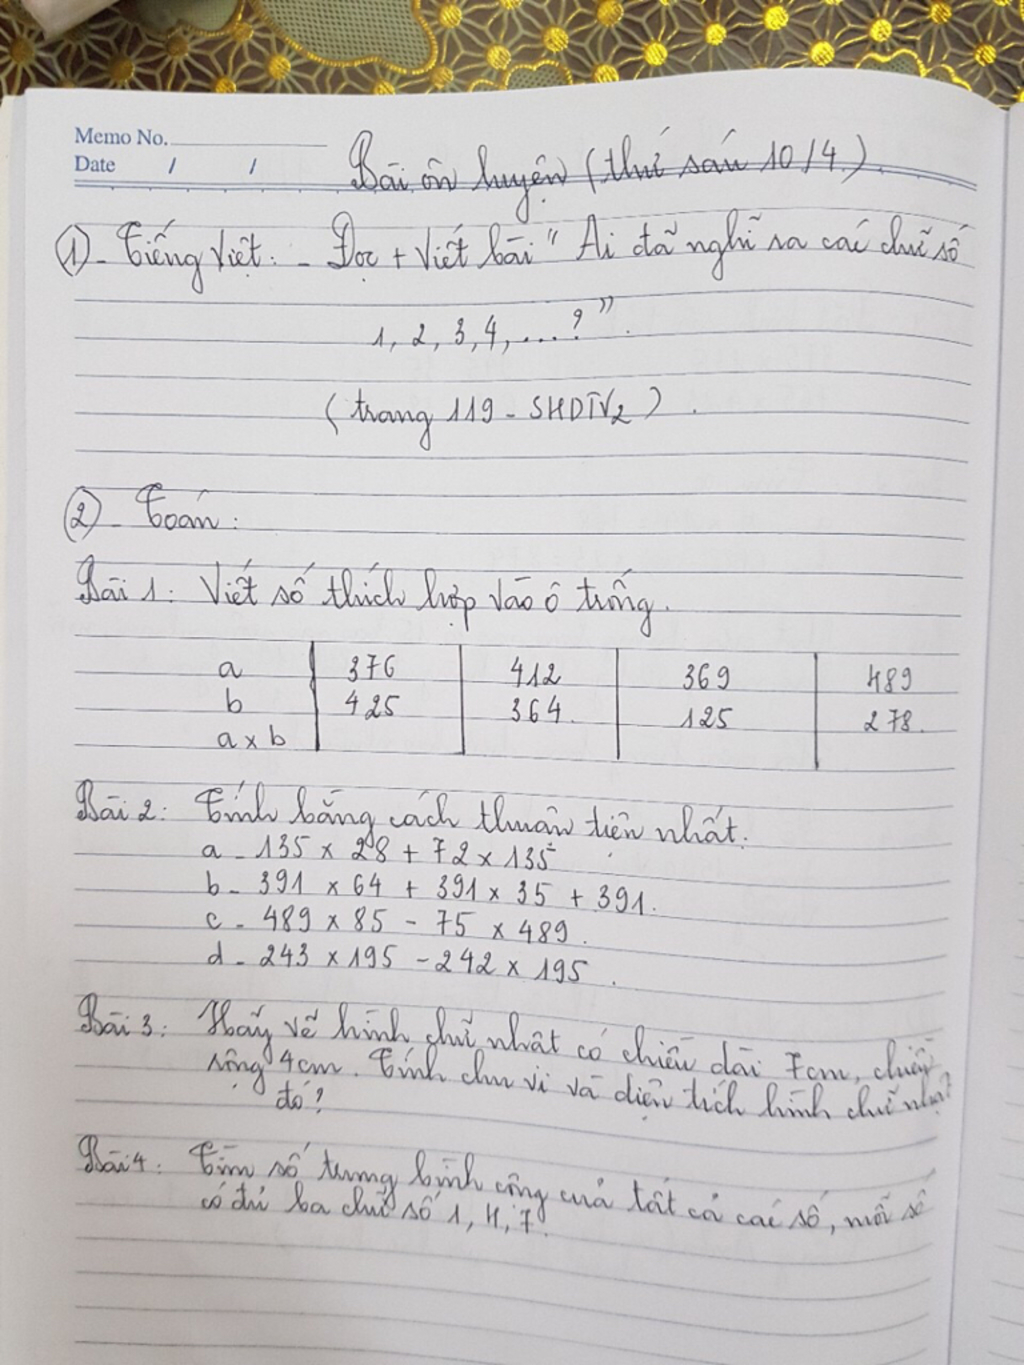 Memo No.
Date / /
Bài ôn luyện (thứ sáu 10/4)
1 - Tiếng Việt: - Đọc + Viết bài "Ai đã nghĩ ra các chữ số
1, 2, 3, 4, ...?".
(trang 119 - SHDTV2).
2 - Toán:
Bài 1: Viết số thích hợp vào ô trống.
a 376 412 369 489
b 425 364 125 278.
a x b
Bài 2: Tính bằng cách thuận tiện nhất.
a - 135 x 28 + 72 x 135
b - 391 x 64 + 391 x 35 + 391.
c - 489 x 85 - 75 x 489.
d - 243 x 195 - 242 x 195.
Bài 3: Hãy vẽ hình chữ nhật có chiều dài 7cm, chiều
rộng 4cm. Tính chu vi và diện tích hình chữ nhật
đó?
Bài 4: Tìm số trung bình cộng của tất cả các số, mỗi số
có đủ ba chữ số 1, 4, 7.